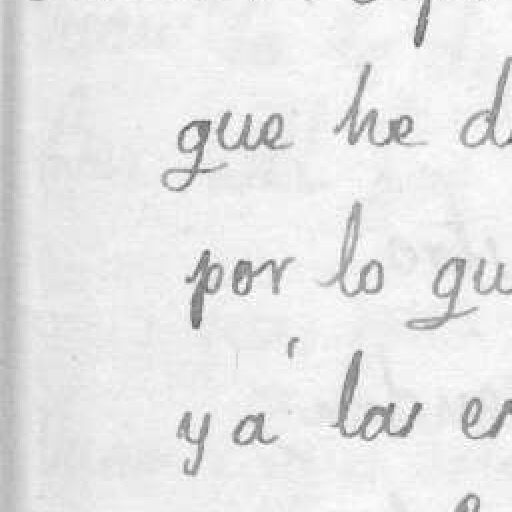 que he d
por lo qu
y a' las en